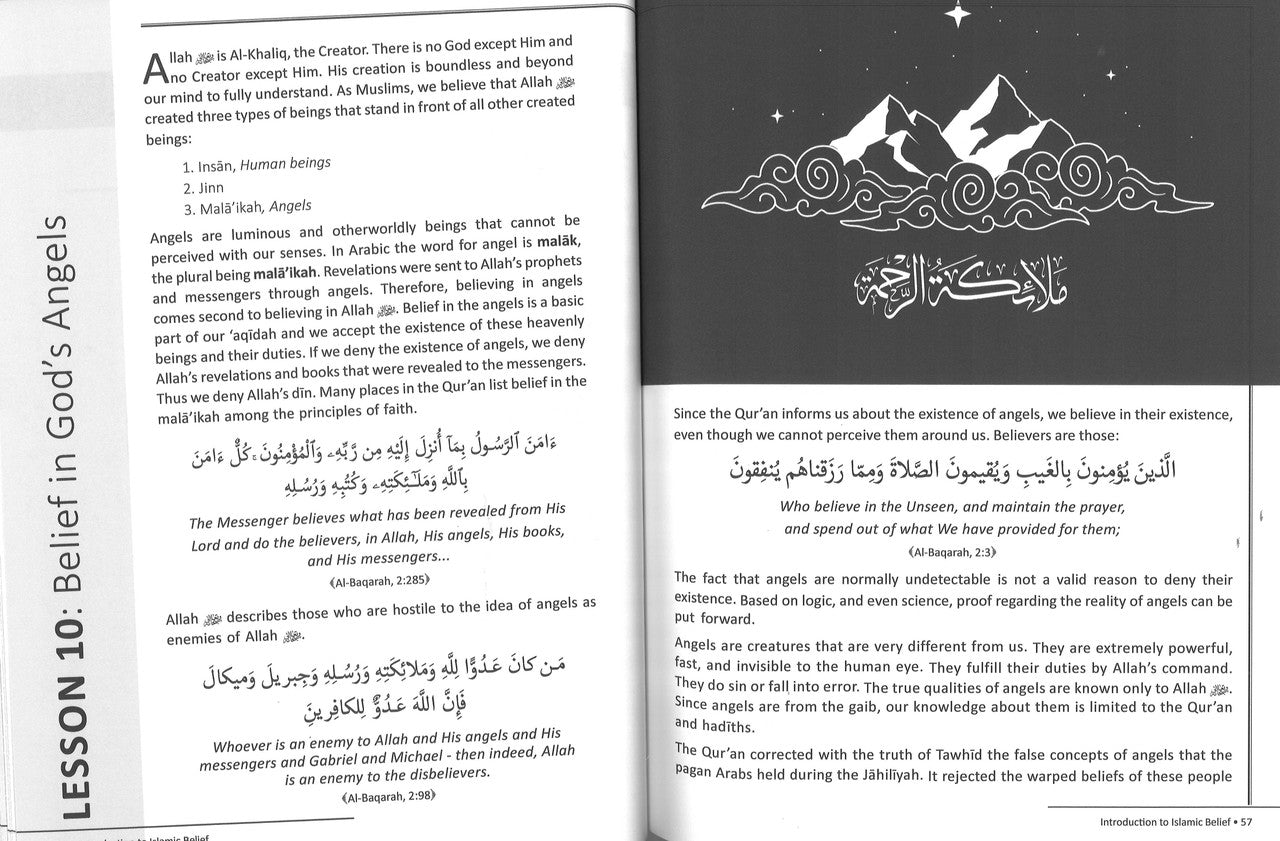 LESSON 10: Belief in God's Angels
Allah ﷻ is Al-Khaliq, the Creator. There is no God except Him and
no Creator except Him. His creation is boundless and beyond
our mind to fully understand. As Muslims, we believe that Allah ﷻ
created three types of beings that stand in front of all other created
beings:
1. Insān, Human beings
2. Jinn
3. Malā'ikah, Angels
Angels are luminous and otherworldly beings that cannot be
perceived with our senses. In Arabic the word for angel is malāk,
the plural being malā'ikah. Revelations were sent to Allah's prophets
and messengers through angels. Therefore, believing in angels
comes second to believing in Allah ﷻ. Belief in the angels is a basic
part of our ‘aqīdah and we accept the existence of these heavenly
beings and their duties. If we deny the existence of angels, we deny
Allah's revelations and books that were revealed to the messengers.
Thus we deny Allah's dīn. Many places in the Qur'an list belief in the
malā'ikah among the principles of faith.
ءَامَنَ ٱلرَّسُولُ بِمَآ أُنزِلَ إِلَيْهِ مِن رَّبِّهِۦ وَٱلْمُؤْمِنُونَ ۚ كُلٌّ ءَامَنَ
بِٱللَّهِ وَمَلَـٰٓئِكَتِهِۦ وَكُتُبِهِ وَرُسُلِهِ
The Messenger believes what has been revealed from His
Lord and do the believers, in Allah, His angels, His books,
and His messengers...
﴾Al-Baqarah, 2:285﴿
Allah ﷻ describes those who are hostile to the idea of angels as
enemies of Allah ﷻ.
مَن كانَ عَدُوًّا لِلَّهِ وَمَلائِكَتِهِ وَرُسُلِهِ وَجِبريلَ وَميكالَ
فَإِنَّ اللَّهَ عَدُوٌّ لِلكافِرينَ
Whoever is an enemy to Allah and His angels and His
messengers and Gabriel and Michael - then indeed, Allah
is an enemy to the disbelievers.
﴾Al-Baqarah, 2:98﴿
to Islamic Belief
مَلَائِكَةُ الرَّحْمَةِ
Since the Qur'an informs us about the existence of angels, we believe in their existence,
even though we cannot perceive them around us. Believers are those:
الَّذينَ يُؤمِنونَ بِالغَيبِ وَيُقيمونَ الصَّلاةَ وَمِمّا رَزَقناهُم يُنفِقونَ
Who believe in the Unseen, and maintain the prayer,
and spend out of what We have provided for them;
﴾Al-Baqarah, 2:3﴿
The fact that angels are normally undetectable is not a valid reason to deny their
existence. Based on logic, and even science, proof regarding the reality of angels can be
put forward.
Angels are creatures that are very different from us. They are extremely powerful,
fast, and invisible to the human eye. They fulfill their duties by Allah's command.
They do sin or fall into error. The true qualities of angels are known only to Allah ﷻ.
Since angels are from the gaib, our knowledge about them is limited to the Qur'an
and hadīths.
The Qur'an corrected with the truth of Tawhīd the false concepts of angels that the
pagan Arabs held during the Jāhilīyah. It rejected the warped beliefs of these people
Introduction to Islamic Belief • 57